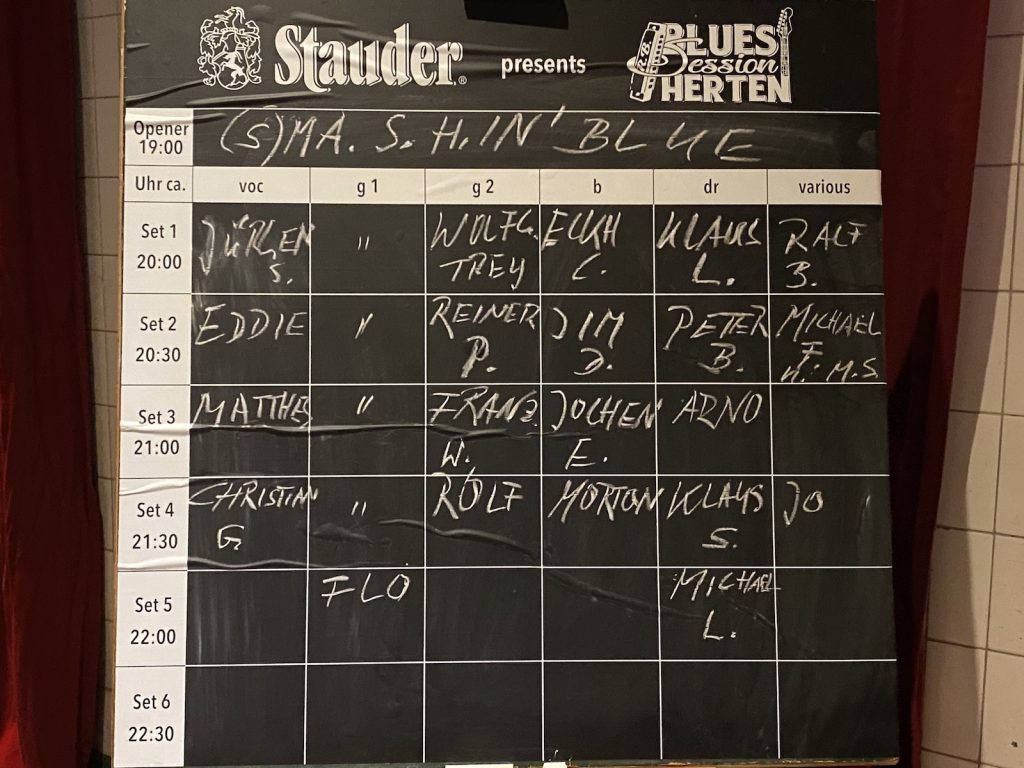 Stauder® presents BLUES Session HERTEN
Opener 19:00 (S)MA. S. H. IN' BLUE
Uhr ca. voc g 1 g 2 b dr various
Set 1 20:00 JÜRGEN S. " WOLFG. TREY ECKH C. KLAUS L. RALF B.
Set 2 20:30 EDDIE " REINER P. JIM D. PETER B. MICHAEL F. M.S.
Set 3 21:00 MATTHES " FRANZ W. JOCHEN E. ARNO
Set 4 21:30 CHRISTIAN G. " ROLF MORTON KLAUS S. JO
Set 5 22:00 FLO MICHAEL L.
Set 6 22:30